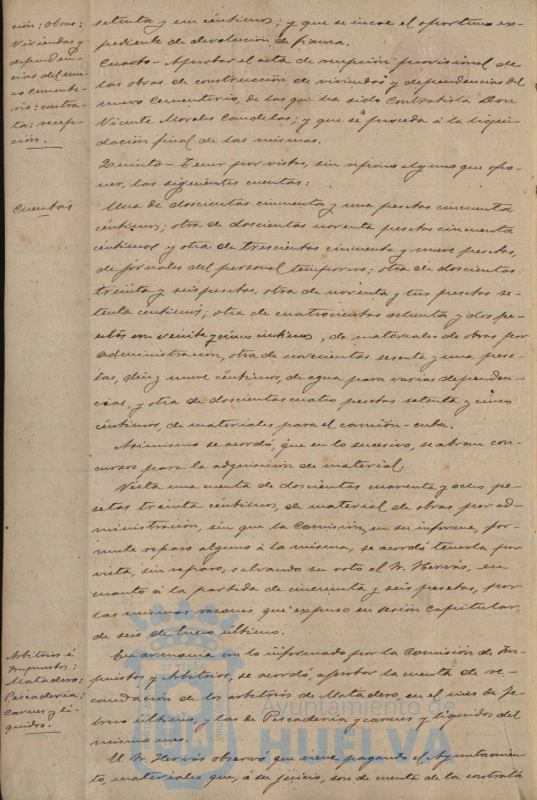 ción: obras:
Viviendas y
dependen-
cias del nue-
vo cemente-
rio: contra-
ta: recep-
ción.
setenta y un céntimos; y que se incoe el oportuno ex-
pediente de devolución de fianza.
Cuarto - Aprobar el acta de recepción provisional de
las obras de construcción de viviendas y dependencias del
nuevo Cementerio, de las que ha sido Contratista Don
Vicente Morales Candelas; y que se proceda á la liqui-
dación final de las mismas.
Quinto - Tener por vistas, sin reparo alguno que opo-
ner, las siguientes cuentas:
Cuentas
Una de doscientas cincuenta y una pesetas cincuenta
céntimos; otra de doscientas noventa pesetas cincuenta
céntimos y otra de trescientas cincuenta y nueve pesetas,
de jornales del personal temporero; otra de doscientas
treinta y seis pesetas, otra de noventa y tres pesetas se-
tenta céntimos; otra de cuatrocientas ochenta y dos pe-
setas con veinte y cinco céntimos, de materiales de obras por
administración, otra de novecientas sesenta y una pese-
tas, diez y nueve céntimos, de agua para varias dependen-
cias, y otra de doscientas cuatro pesetas setenta y cinco
céntimos, de materiales para el camión-cuba.
Asimismo se acordó, que en lo sucesivo, se abran con-
cursos para la adquisición de material.
Vista una cuenta de doscientas cuarenta y ocho pe-
setas treinta céntimos, de material de obras por ad-
ministración, sin que la Comisión, en su informe, for-
mule reparo alguno á la misma, se acordó tenerla por
vista, sin reparo, salvando su voto el Sr. Hervás, en
cuanto á la partida de cincuenta y seis pesetas, por
las mismas razones que expuso en sesión capitular
de seis de Enero último.
Arbitrios é
Impuestos:
Matadero:
Pescadería:
Carnes y lí-
quidos.
En armonía con lo informado por la Comisión de Im-
puestos y Arbitrios, se acordó, aprobar la cuenta de re-
caudación de los arbitrios de Matadero, en el mes de Fe-
brero último, y las de Pescadería y carnes y líquidos del
mismo mes.
El Sr. Hervás observó que viene pagando el Ayuntamien-
to, materiales que, á su juicio, son de cuenta de la contrata
Ayuntamiento de
HUELVA